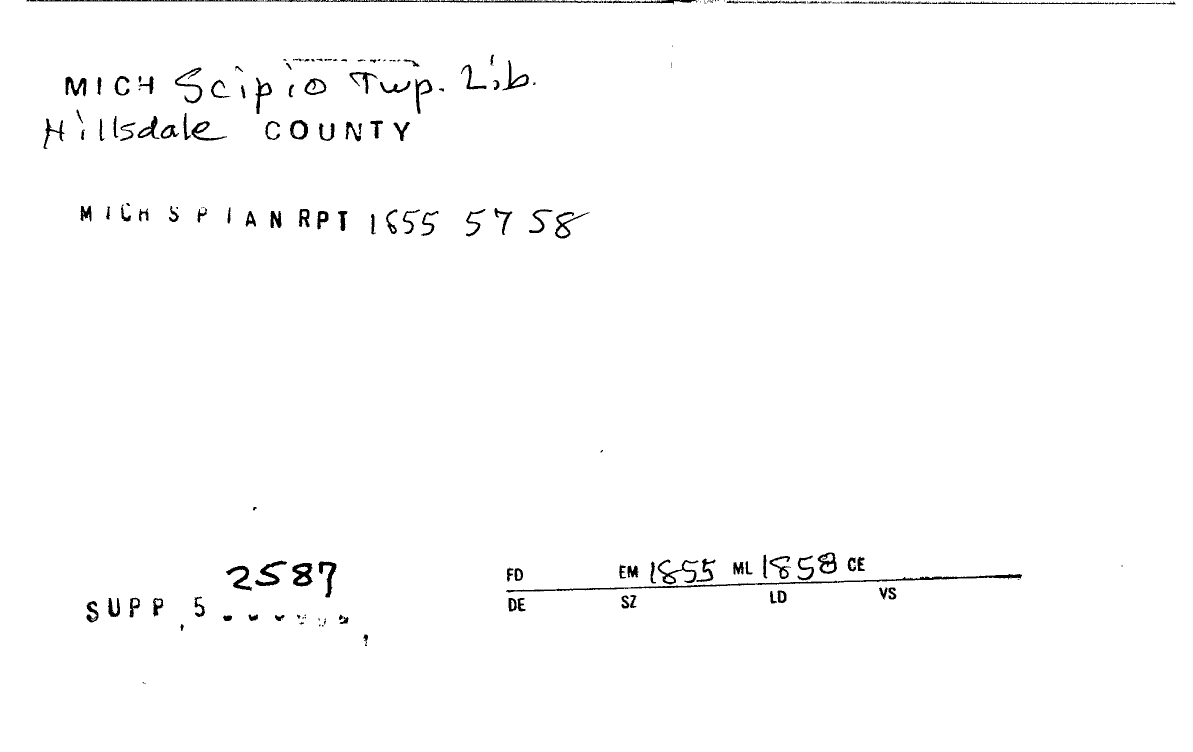 MICH Scipio Twp. Lib.
Hillsdale COUNTY
MICH SPIANRPT 1855 57 58
2587
SUPP, 5 . . . . . . . ,
FD EM 1855 ML 1858 CE
DE SZ LD VS